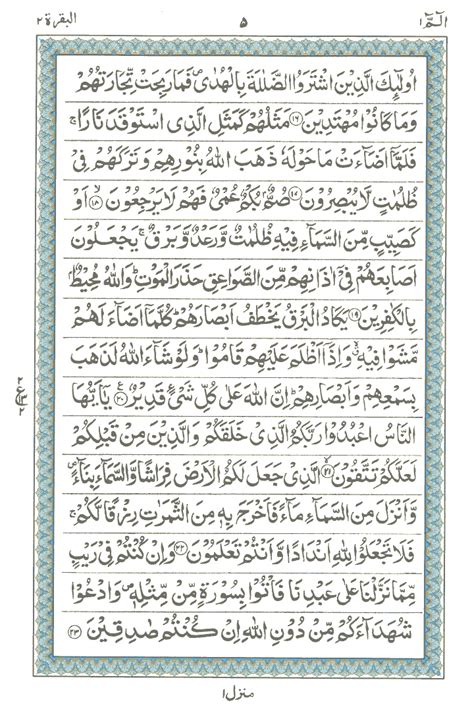 الٓمّٓ ۱
۵
البقرة ۲
اُولٰٓئِكَ الَّذِيْنَ اشْتَرَوُا الضَّلٰلَةَ بِالْهُدٰى۪ فَمَا رَبِحَتْ تِّجَارَتُهُمْ
وَمَا كَانُوْا مُهْتَدِيْنَ ﴿۱۶﴾ مَثَلُهُمْ كَمَثَلِ الَّذِى اسْتَوْقَدَ نَارًا ۚ
فَلَمَّاۤ اَضَآءَتْ مَا حَوْلَهٗ ذَهَبَ اللّٰهُ بِنُوْرِهِمْ وَتَرَكَهُمْ فِىْ
ظُلُمٰتٍ لَّا يُبْصِرُوْنَ ﴿۱۷﴾ صُمٌّۢ بُكْمٌ عُمْىٌ فَهُمْ لَا يَرْجِعُوْنَ ﴿۱۸﴾ اَوْ
كَصَيِّبٍ مِّنَ السَّمَآءِ فِيْهِ ظُلُمٰتٌ وَّرَعْدٌ وَّبَرْقٌ ۚ يَجْعَلُوْنَ
اَصَابِعَهُمْ فِىْۤ اٰذَانِهِمْ مِّنَ الصَّوَاعِقِ حَذَرَ الْمَوْتِ ؕ وَاللّٰهُ مُحِيْطٌۢ
بِالْكٰفِرِيْنَ ﴿۱۹﴾ يَكَادُ الْبَرْقُ يَخْطَفُ اَبْصَارَهُمْ ؕ كُلَّمَاۤ اَضَآءَ لَهُمْ
مَّشَوْا فِيْهِ ۙ وَاِذَاۤ اَظْلَمَ عَلَيْهِمْ قَامُوْا ؕ وَلَوْ شَآءَ اللّٰهُ لَذَهَبَ
بِسَمْعِهِمْ وَاَبْصَارِهِمْ ؕ اِنَّ اللّٰهَ عَلٰى كُلِّ شَىْءٍ قَدِيْرٌ ﴿۲۰﴾ يٰۤاَيُّهَا
النَّاسُ اعْبُدُوْا رَبَّكُمُ الَّذِىْ خَلَقَكُمْ وَالَّذِيْنَ مِنْ قَبْلِكُمْ
لَعَلَّكُمْ تَتَّقُوْنَ ﴿۲۱﴾ الَّذِىْ جَعَلَ لَكُمُ الْاَرْضَ فِرَاشًا وَّالسَّمَآءَ بِنَآءً ۪
وَّاَنْزَلَ مِنَ السَّمَآءِ مَآءً فَاَخْرَجَ بِهٖ مِنَ الثَّمَرٰتِ رِزْقًا لَّكُمْ ۚ
فَلَا تَجْعَلُوْا لِلّٰهِ اَنْدَادًا وَّاَنْتُمْ تَعْلَمُوْنَ ﴿۲۲﴾ وَاِنْ كُنْتُمْ فِىْ رَيْبٍ
مِّمَّا نَزَّلْنَا عَلٰى عَبْدِنَا فَاْتُوْا بِسُوْرَةٍ مِّنْ مِّثْلِهٖ ۪ وَادْعُوْا
شُهَدَآءَكُمْ مِّنْ دُوْنِ اللّٰهِ اِنْ كُنْتُمْ صٰدِقِيْنَ ﴿۲۳﴾
منزل ۱